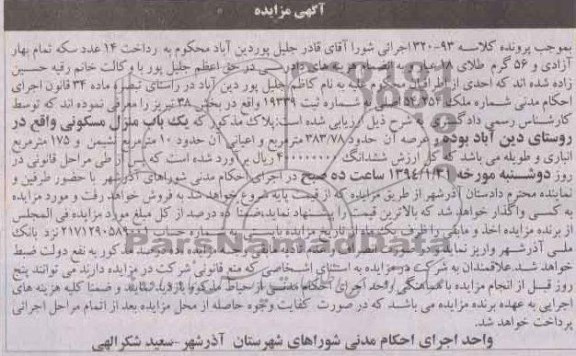 آگهی مزایده
بموجب پرونده کلاسه ۹۳-۳۲۰ اجرائی شورا آقای قادر جلیل پوردین آباد محکوم به رداخت ۱۴ عدد سکه تمام بهار
آزادی و ۵۶ گرم طلای ۱۸ عیار به انضمام هزینه های دادرسی در حق اعظم جلیل پور با وکالت خانم رقیه حسین
زاده شده اند که احدی از اطرافیان محکوم علیه به نام کاظم جلیل پور دین آباد در راستای تبصره ماده ۳۴ قانون اجرای
احکام مدنی شماره ملک اصلی به شماره ثبت ۱۹۳۳۹ واقع در بخش ۳۸ تبریز را معرفی نموده اند که توسط
کارشناس رسمی دادگستری به شرح ذیل ارزیابی شده است: پلاک مذکور که یک باب منزل مسکونی واقع در
روستای دین آباد بوده و عرصه آن حدود ۳۸۳/۷۸ مترمربع و اعیانی آن حدود ۱۰ مترمربع نشیمن و ۱۷۵ مترمربع
انباری و طویله می باشد که کل ارزش ششدانگ ریال برآورد شده است که پس از طی مراحل قانونی در
روز دوشنبه مورخه ۱۳۹۴/۱/۳۱ ساعت ده صبح در اجرای احکام مدنی شوراهای آذرشهر با حضور طرفین و
نماینده محترم دادستان آذرشهر از طریق مزایده که از قیمت پایه شروع خواهد شد به فروش خواهد رفت و مورد مزایده
به کسی واگذار خواهد شد که بالاترین قیمت را پیشنهاد نماید ضمنا ده درصد از کل مبلغ مورد مزایده فی المجلس
از برنده مزایده اخذ و مابقی را ظرف یکماه از تاریخ مزایده بایستی به شماره حساب نزد بانک
ملی آذرشهر واریز نماید در صورت انصراف برنده مزایده ده درصد مذکور به نفع دولت ضبط
خواهد شد. علاقمندان به شرکت در مزایده به استثنای اشخاصی که منع قانونی شرکت در مزایده دارند می توانند پنج
روز قبل از انجام مزایده با هماهنگی واحد اجرای احکام مدنی از حیاط ملک بازدید نمایند و ضمنا کلیه هزینه های
اجرایی به عهده برنده مزایده می باشند که در صورت کفایت وجوه حاصله از محل مزایده بعد از اتمام مراحل اجرائی
پرداخت خواهد شد.
واحد اجرای احکام مدنی شوراهای شهرستان آذرشهر -سعید شکرالهی
ParsNamadData